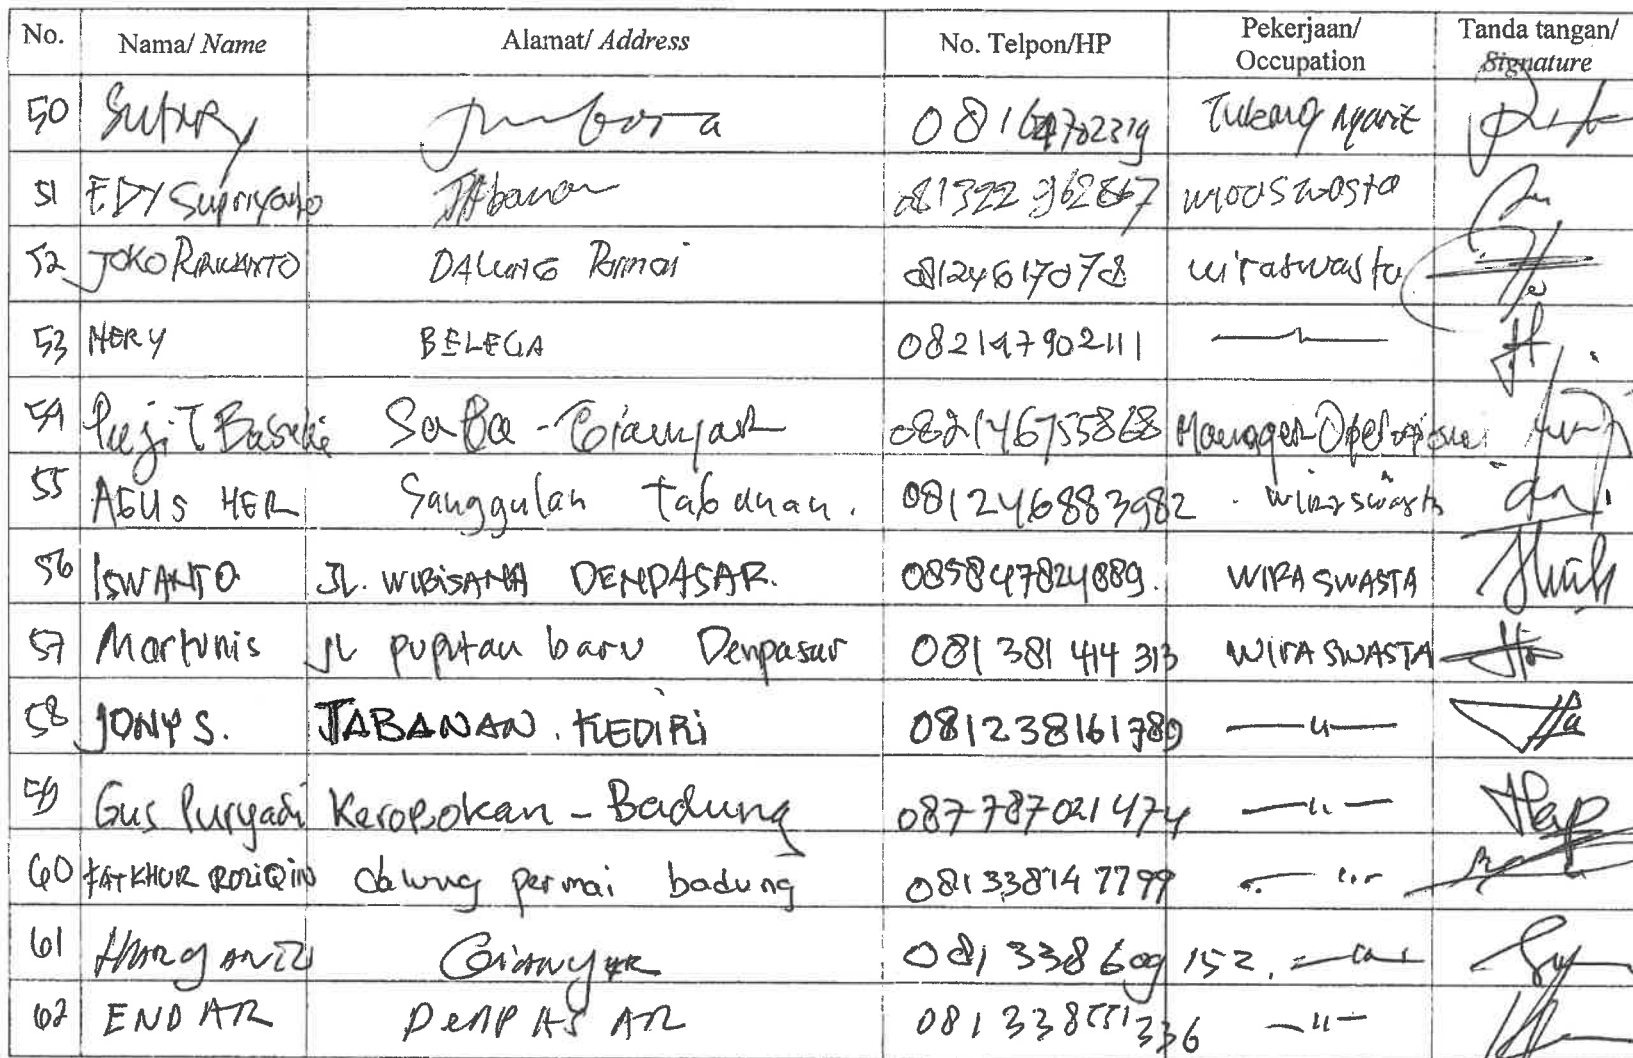 No. Nama/ Name Alamat/ Address No. Telpon/HP Pekerjaan/ Occupation Tanda tangan/ Signature
50 Tukang ngarit
51 EDY Supriyanto Tabanan 081322962867
52 JOKO PURWANTO DALUNG Permai 08124617078 wiraswasta
53 HERY BELEGA 082147902111
54 Puji T Basuki Saba - Gianyar 082146755868 Manager Operasional
55 AGUS HER Sanggulan tabanan. 081246883982 wiraswasta
56 ISWANTO JL. WIBISANA DENPASAR. 085847824889. WIRASWASTA
57 Martunis JL puputan baru Denpasar 081381414313 WIRASWASTA
58 JONY S. TABANAN. KEDIRI 081238161789 —〃—
59 Gus Puryadi Kerobokan - Badung 087787021474 —〃—
60 FATKHUR ROZIQIN dalung permai badung 081338147799 —〃—
61 HARGANTI Gianyar 081338609152. —〃—
62 ENDAR DENPASAR 081338551336 —〃—